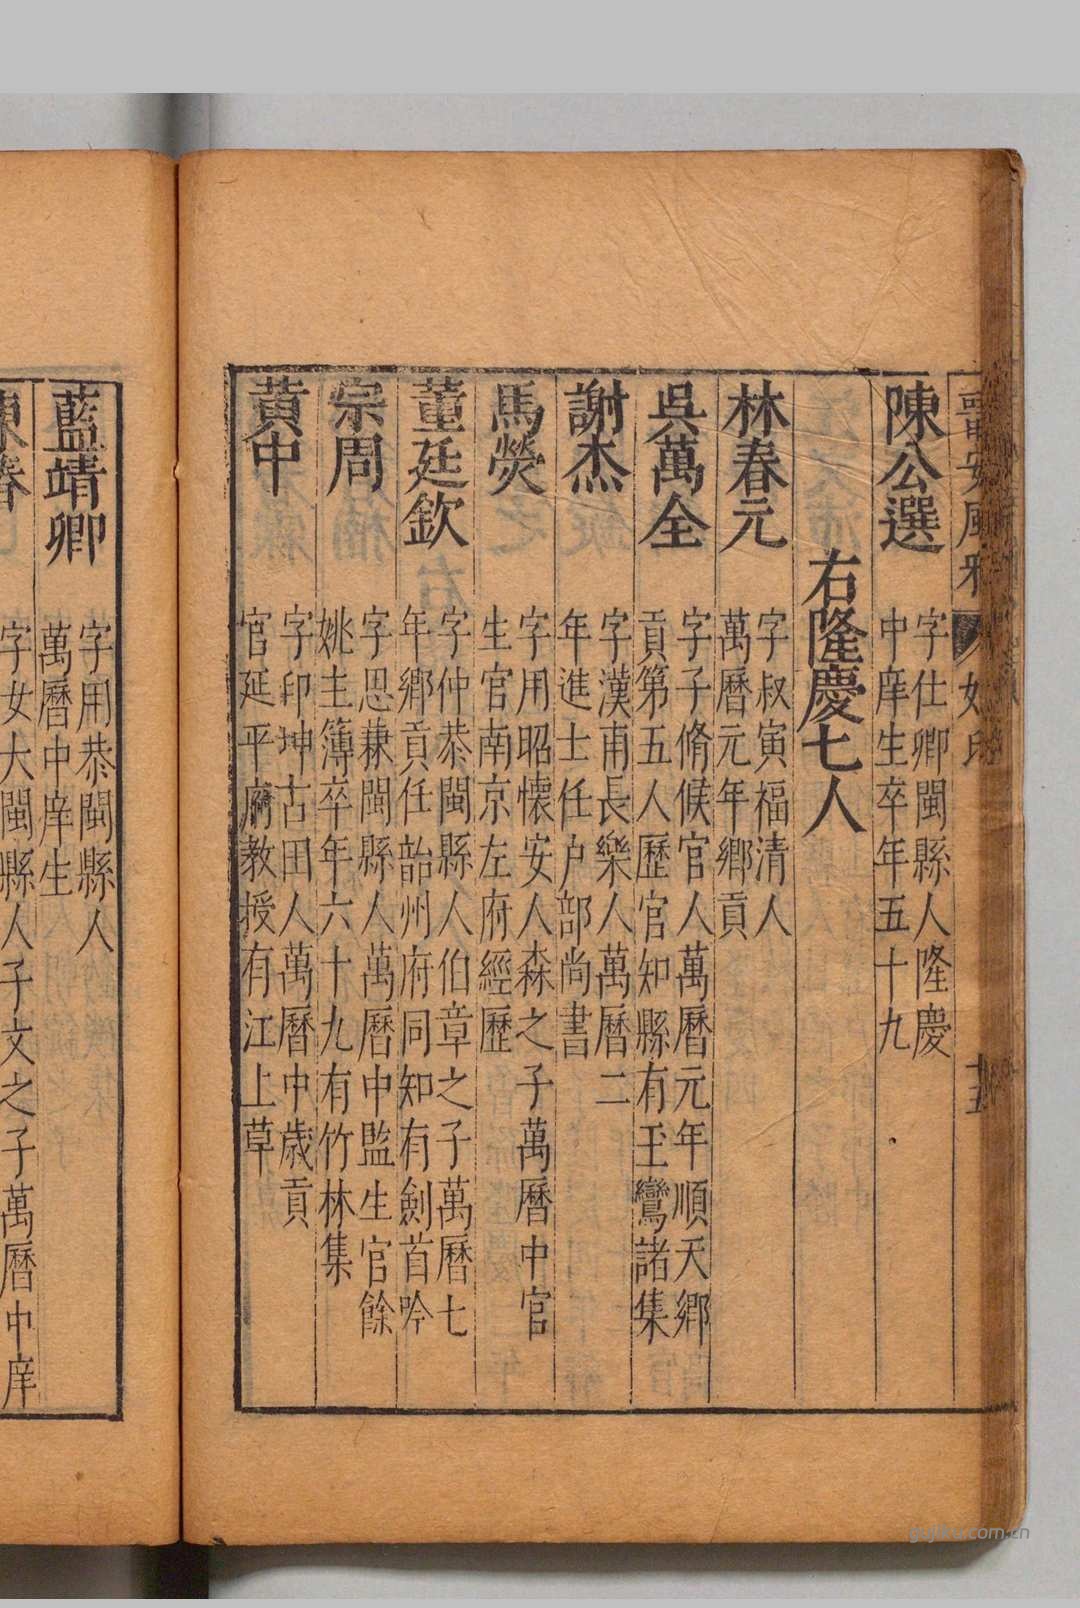 陳公選
字仕卿閩縣人隆慶
中庠生卒年五十九
右隆慶七人
林春元
字叔寅福清人
萬曆元年鄉貢
吳萬全
字子脩候官人萬曆元年順天鄉
貢第五人歷官知縣有玉鸞諸集
謝杰
字漢甫長樂人萬曆二
年進士任户部尚書
馬熒
字用昭懷安人森之子萬曆中官
生官南京左府經歷
董廷欽
字仲恭閩縣人伯章之子萬曆七
年鄉貢任韶州府同知有劍首吟
宗周
字思兼閩縣人萬曆中監生官餘
姚主簿卒年六十九有竹林集
黃中
字印坤古田人萬曆中歲貢
官延平府教授有江上草
藍靖卿
字用恭閩縣人
萬曆中庠生
字女大閩縣人子文之子萬曆中庠
gujiku.com.cn